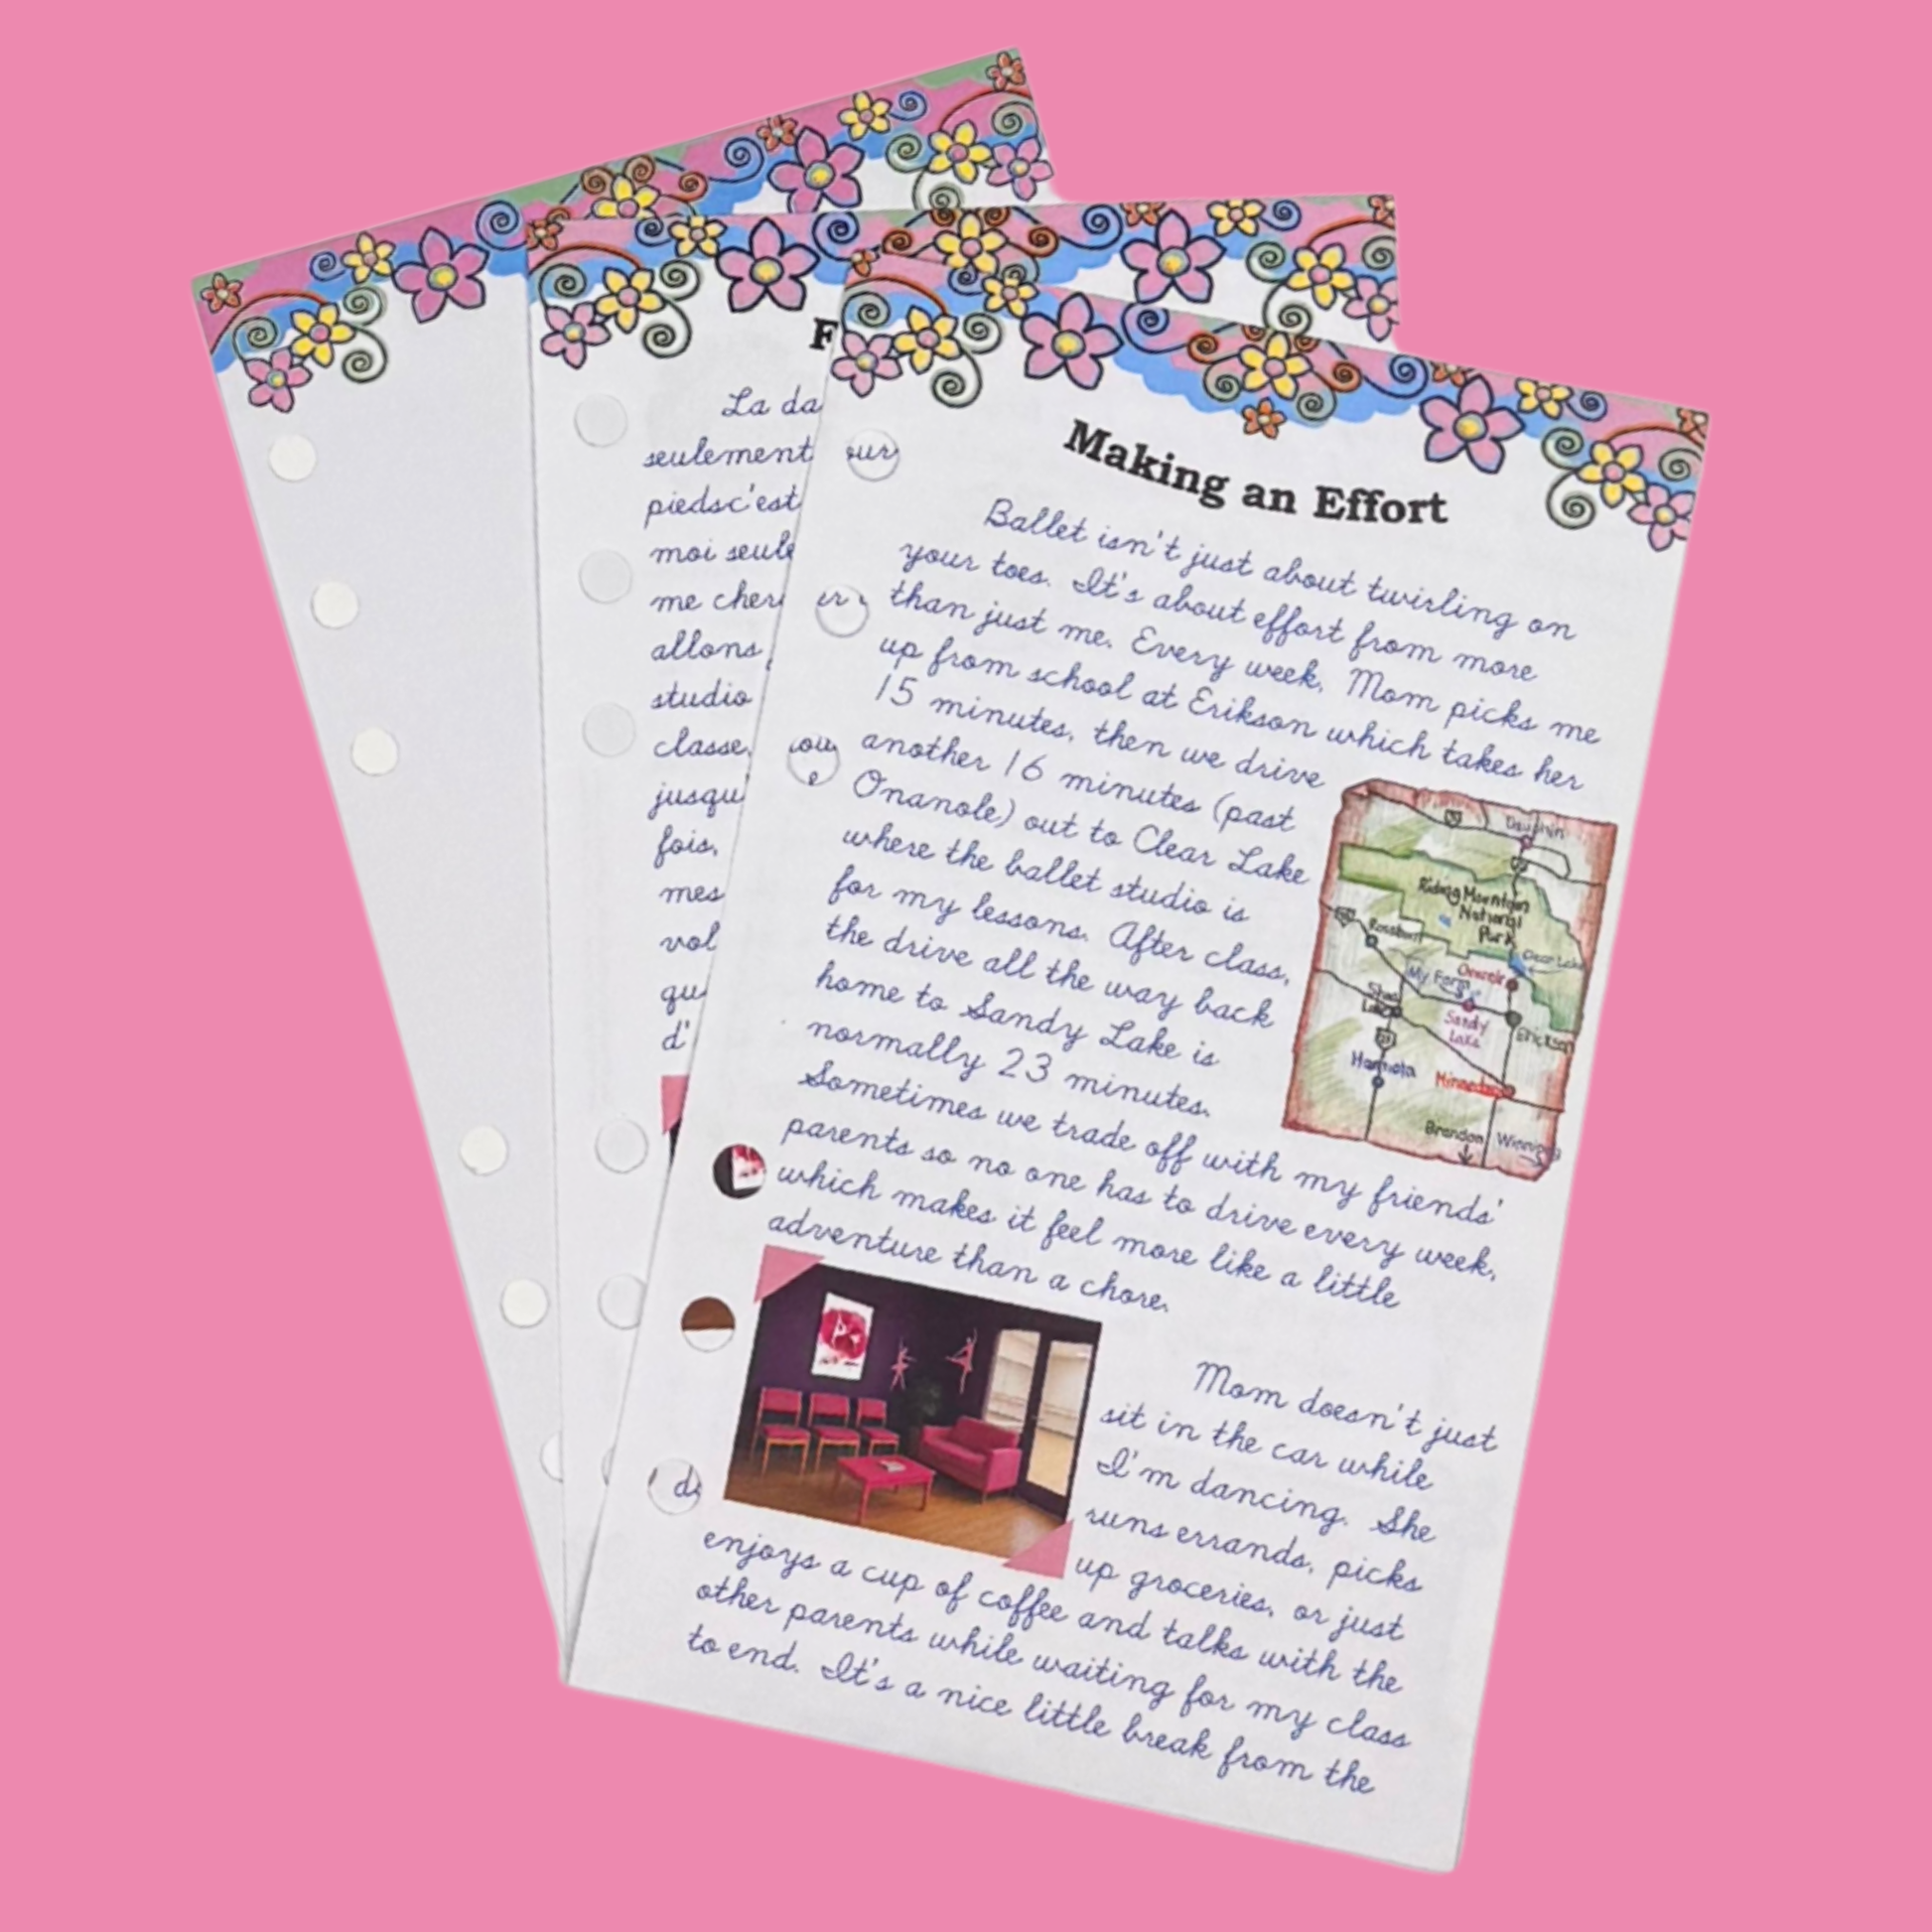 Making an Effort
Ballet isn't just about twirling on
your toes. It's about effort from more
than just me. Every week, Mom picks me
up from school at Erikson which takes her
15 minutes, then we drive
another 16 minutes (past
Onanole) out to Clear Lake
where the ballet studio is
for my lessons. After class,
the drive all the way back
home to Sandy Lake is
normally 23 minutes.
Sometimes we trade off with my friends'
parents so no one has to drive every week,
which makes it feel more like a little
adventure than a chore.
Mom doesn't just
sit in the car while
I'm dancing. She
runs errands, picks
up groceries, or just
enjoys a cup of coffee and talks with the
other parents while waiting for my class
to end. It's a nice little break from the
Dauphin
Riding Mountain
National
Park
Rossburn
Clear Lake
Onanole
My Farm
Shoal
Lake
Sandy
Lake
Erickson
Hamiota
Minnedosa
Brandon
Winnipeg
F
La da
seulement
piedsc'est
moi seule
me cher
allons
studio
classe,
jusqu
fois,
mes
vol
qu
d'